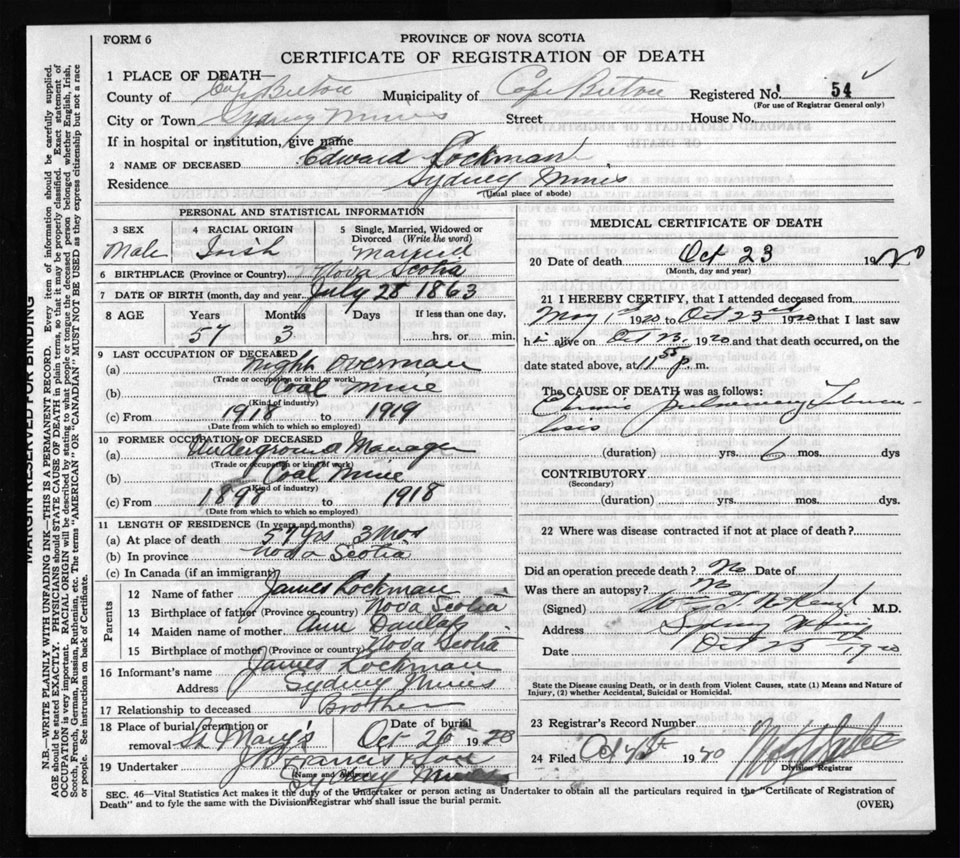 FORM 6
PROVINCE OF NOVA SCOTIA
CERTIFICATE OF REGISTRATION OF DEATH
1 PLACE OF DEATH—
County of Cape Breton Municipality of Cape Breton Registered No. 54
(For use of Registrar General only)
City or Town Sydney Mines Street House No.
If in hospital or institution, give name
2 NAME OF DECEASED Edward Lockman
Residence Sydney Mines
(Usual place of abode)
PERSONAL AND STATISTICAL INFORMATION
3 SEX 4 RACIAL ORIGIN 5 Single, Married, Widowed or Divorced (Write the word)
Male Irish Married
6 BIRTHPLACE (Province or Country) Nova Scotia
7 DATE OF BIRTH (month, day and year) July 28 1863
8 AGE Years Months Days If less than one day,
57 3 hrs. or min.
9 LAST OCCUPATION OF DECEASED
(a) Night Overman
(Trade or occupation or kind of work)
(b) Coal Mine
(Kind of industry)
(c) From 1918 to 1919
(Date from which to which so employed)
10 FORMER OCCUPATION OF DECEASED
(a) Underground Manager
(Trade or occupation or kind of work)
(b) Coal Mine
(Kind of industry)
(c) From 1898 to 1918
(Date from which to which so employed)
11 LENGTH OF RESIDENCE (In years and months)
(a) At place of death 57 Yrs 3 Mos
(b) In province Nova Scotia
(c) In Canada (if an immigrant)
Parents
12 Name of father James Lockman
13 Birthplace of father (Province or country) Nova Scotia
14 Maiden name of mother Ann Dunlap
15 Birthplace of mother (Province or country) Nova Scotia
16 Informant's name James Lockman
Address Sydney Mines
17 Relationship to deceased Brother
18 Place of burial, cremation or removal St Mary's Date of burial Oct 26 1920
19 Undertaker J Francis
(Name and Address)
Sydney Mines
MEDICAL CERTIFICATE OF DEATH
20 Date of death Oct 23 1920
(Month, day and year)
21 I HEREBY CERTIFY, that I attended deceased from
May 1st 1920 to Oct 23rd 1920 that I last saw
h im alive on Oct 23 1920 and that death occurred, on the
date stated above, at 11 55 p. m.
The CAUSE OF DEATH was as follows:
Chronic pulmonary Tubercu-
losis
(duration) yrs. 6 mos. dys
CONTRIBUTORY
(Secondary)
(duration) yrs. mos. dys.
22 Where was disease contracted if not at place of death?
Did an operation precede death? No Date of
Was there an autopsy? No
(Signed) M.D.
Address Sydney Mines
Date Oct 25 1920
State the Disease causing Death, or in death from Violent Causes, state (1) Means and Nature of
Injury, (2) whether Accidental, Suicidal or Homicidal.
23 Registrar's Record Number
24 Filed
Division Registrar
SEC. 46—Vital Statistics Act makes it the duty of the Undertaker or person acting as Undertaker to obtain all the particulars required in the "Certificate of Registration of
Death" and to fyle the same with the Division Registrar who shall issue the burial permit. (OVER)
MARGIN RESERVED FOR BINDING
N.B.—WRITE PLAINLY WITH UNFADING INK—THIS IS A PERMANENT RECORD. Every item of information should be carefully supplied.
AGE should be stated EXACTLY. PHYSICIANS should STATE CAUSE OF DEATH in plain terms, so that it may be properly classified. Exact statement of
OCCUPATION is very important. RACIAL ORIGIN will be described by stating to what people or tongue the deceased person belonged, whether English, Irish,
Scotch, French, German, Russian, Ruthenian, etc. The terms "AMERICAN" OR "CANADIAN" MUST NOT BE USED as they express citizenship but not a race
or people. See instructions on back of Certificate.